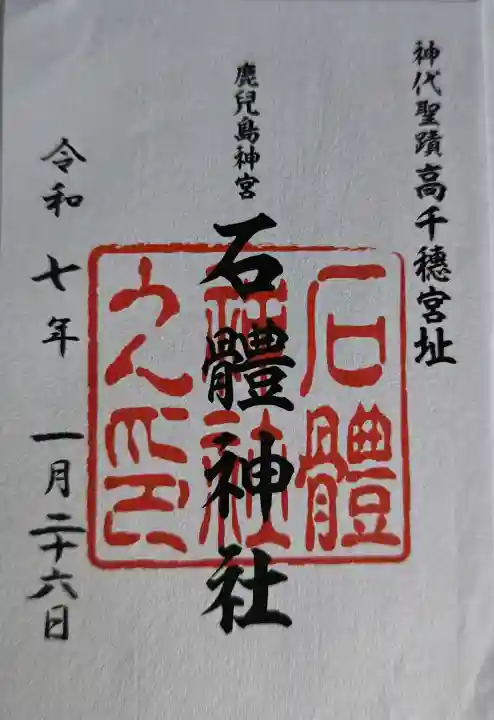 神代聖蹟高千穗宮址
鹿兒島神宮
石體神社
令和七年一月二十六日
石體
神社